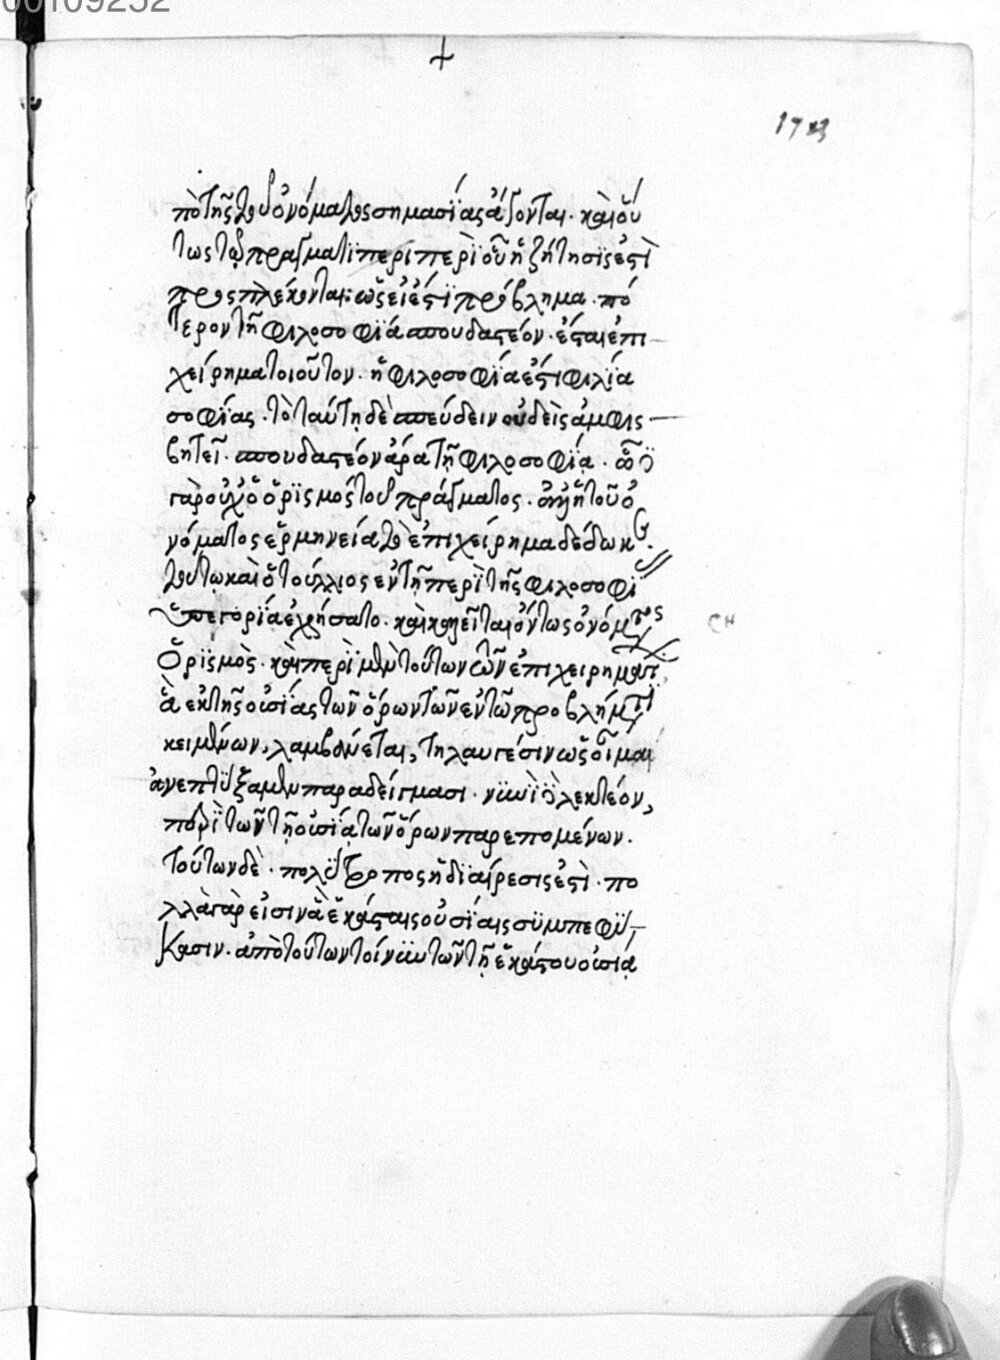 00109252
173
πὸ τῆς τοῦ ὀνόματος σημασΐας ἄγονται· καὶ οὕ
τως τῷ πράγματι περὶ οὗ ἡ ζήτησΐς ἐστὶ
προσπλέκονται· ὡς εἰ ἐστὶ πρόβλημα· πό
τερον τῇ φιλοσοφΐᾳ σπουδαστέον· ἔσται ἐπι
χείρημα τοιοῦτον· ἡ φιλοσοφΐα ἐστὶ φιλΐα
σοφΐας· τὸ ταύτῃ δὲ σπεύδειν οὐδεὶς ἀμφισ
βητεῖ· σπουδαστέον ἄρα τῇ φιλοσοφΐᾳ·
γὰρ οὐχ ὁ ὁρΐσμὸς τοῦ πράγματος· ἀλλ' ἡ τοῦ ὀ
νόματος ἑρμηνεία τὸ ἐπιχείρημα δέδωκε·
τούτῳ καὶ ὁ τούλλιος ἐν τῇ περὶ τῆς φιλοσοφΐ
ὑπεγορΐα ἐχρήσατο· καὶ καλεῖται ὄντως ὀνόματος
ὁρΐσμὸς· καὶ περὶ μὲν τούτων τῶν ἐπιχειρημάτ
ἃ ἐκ τῆς οὐσΐας τῶν ὅρων τῶν ἐν τῷ προβλήματι
κειμένων, λαμβάνεται, τηλαυγέσιν ὡς οἶμαι
ἀνεπτΰξαμεν παραδείγμασι· νῦν λεκτέον,
περὶ τῶν τῇ οὐσΐᾳ τῶν ὅρων παρεπομένων.
τούτων δὲ· πολΰτροπος ἡ δΐαίρεσις ἐστὶ· πο
λλὰ γὰρ εἰσιν ἃ ἑκάσταις οὐσΐαις συμπεφΰ
κασιν· ἀπὸ τούτων τοίνυν τῶν τῇ ἑκάστου οὐσίᾳ